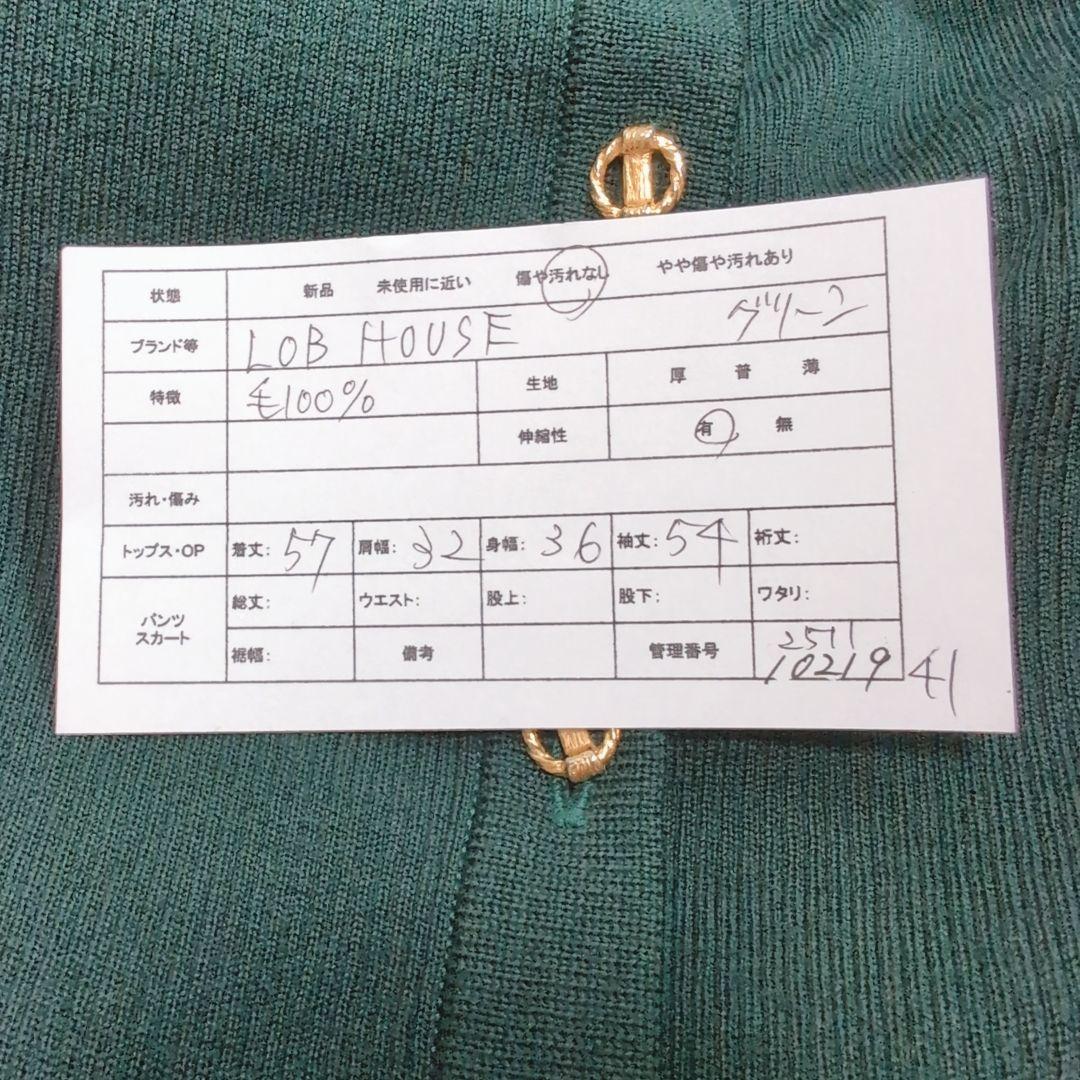 状態 新品 未使用に近い 傷や汚れなし やや傷や汚れあり
ブランド等 LOB HOUSE グリーン
特徴 毛100% 生地 厚 普 薄
伸縮性 有 無
汚れ・傷み
トップス・OP 着丈: 57 肩幅: 32 身幅: 36 袖丈: 54 裄丈:
パンツ スカート 総丈: ウエスト: 股上: 股下: ワタリ:
裾幅: 備考 管理番号 2511
10219 41